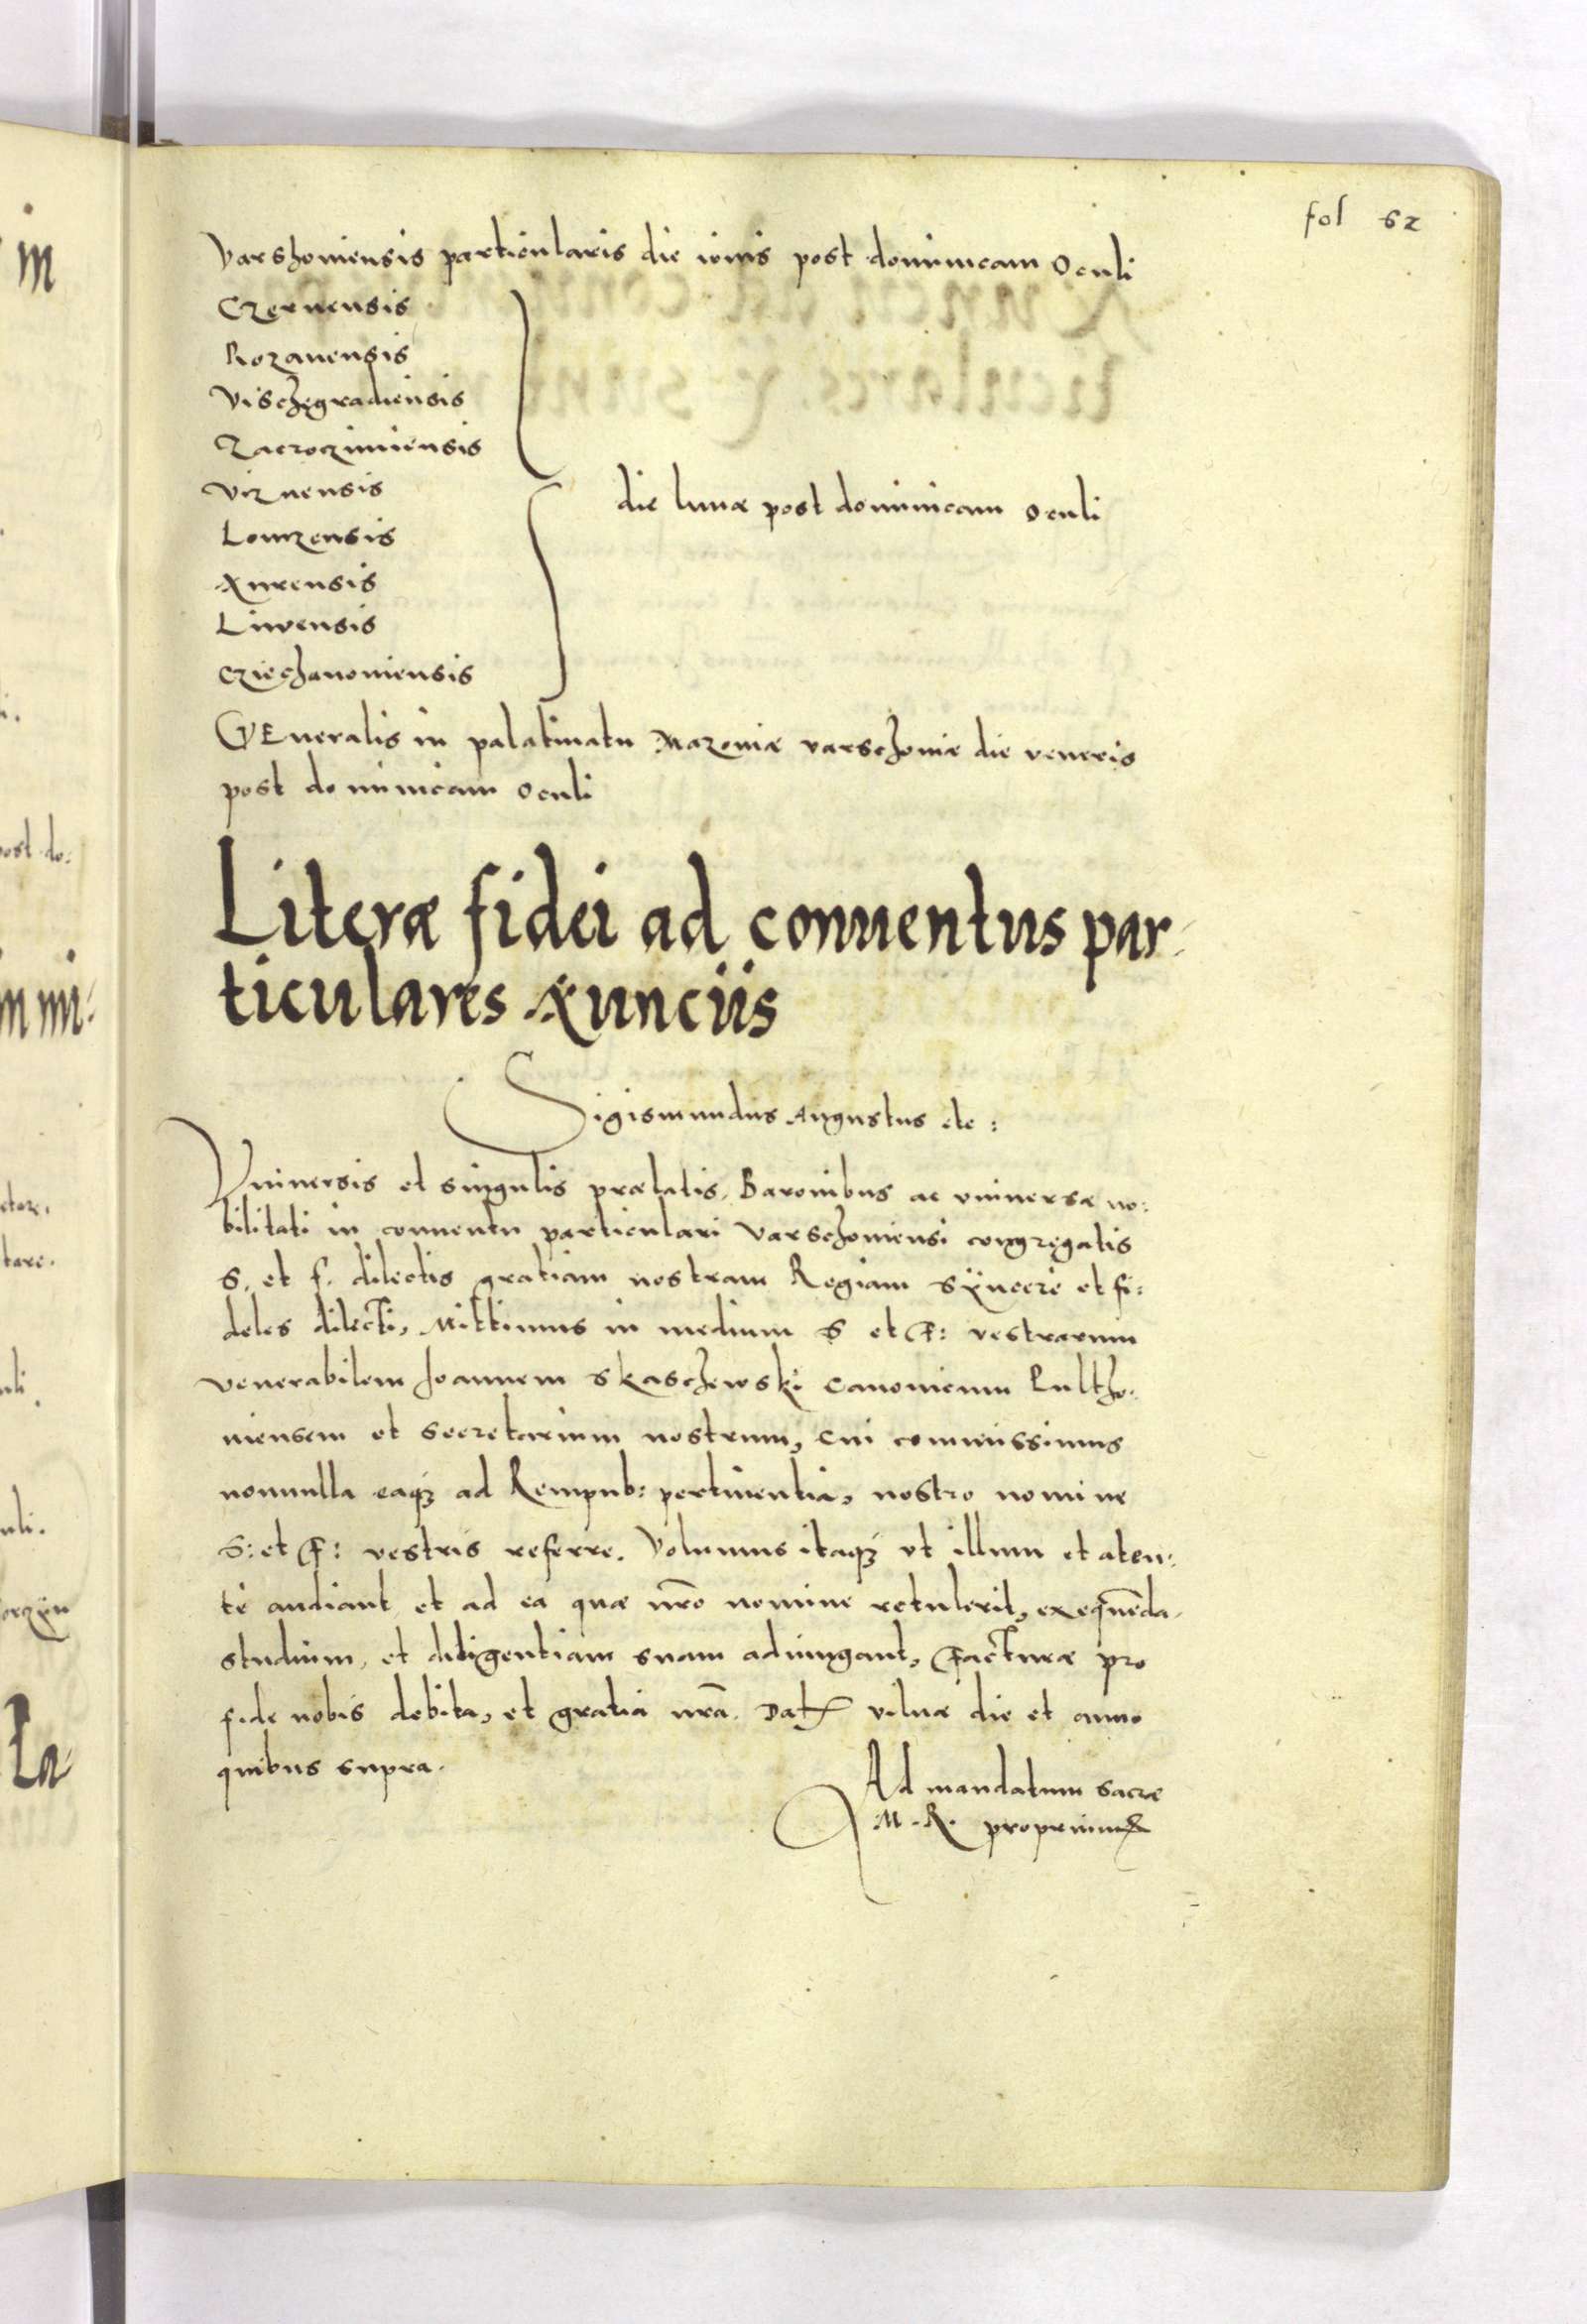 fol 62
Varshoviensis particularis die iovis post dominicam Oculi
Czernensis
Rozanensis
Vischegradiensis
Zacrocziniensis
Viznensis
Lomzensis
Nurensis
Liwensis
Cziechanoviensis
die lunæ post dominicam oculi
GEneralis in palatinatu Mazoviæ varschoviæ die veneris
post dominicam oculi
Literæ fidei ad conuentus par-
ticulares Nunciis
Sigismundus Augustus etc:
Vniuersis et singulis prælatis, Baronibus ac vniuersæ no:
bilitati in conuentu particulari Varschouiensi congregatis
S. et f. dilectis gratiam nostram Regiam Sÿncere et fi:
deles dilecti, Mittimus in medium S et F: vestrarum
venerabilem Joannem Skaschewski Canonicum Pultho-
uiensem et Secretarium nostrum, cui commissimus
nonnulla eaqȝ ad Rempub: pertinentia, nostro nomine
S: et F: vestris referre. Volumus itaqȝ vt illum et aten:
te audiant et ad ea quæ nr̃o nomine retulerit, exequẽda
studium, et diligentiam suam adiungant, Facturæ pro
fide nobis debita, et gratia nr̃a. Dat vilnæ die et anno
quibus supra.
Ad mandatum sacræ
M. R. proprium